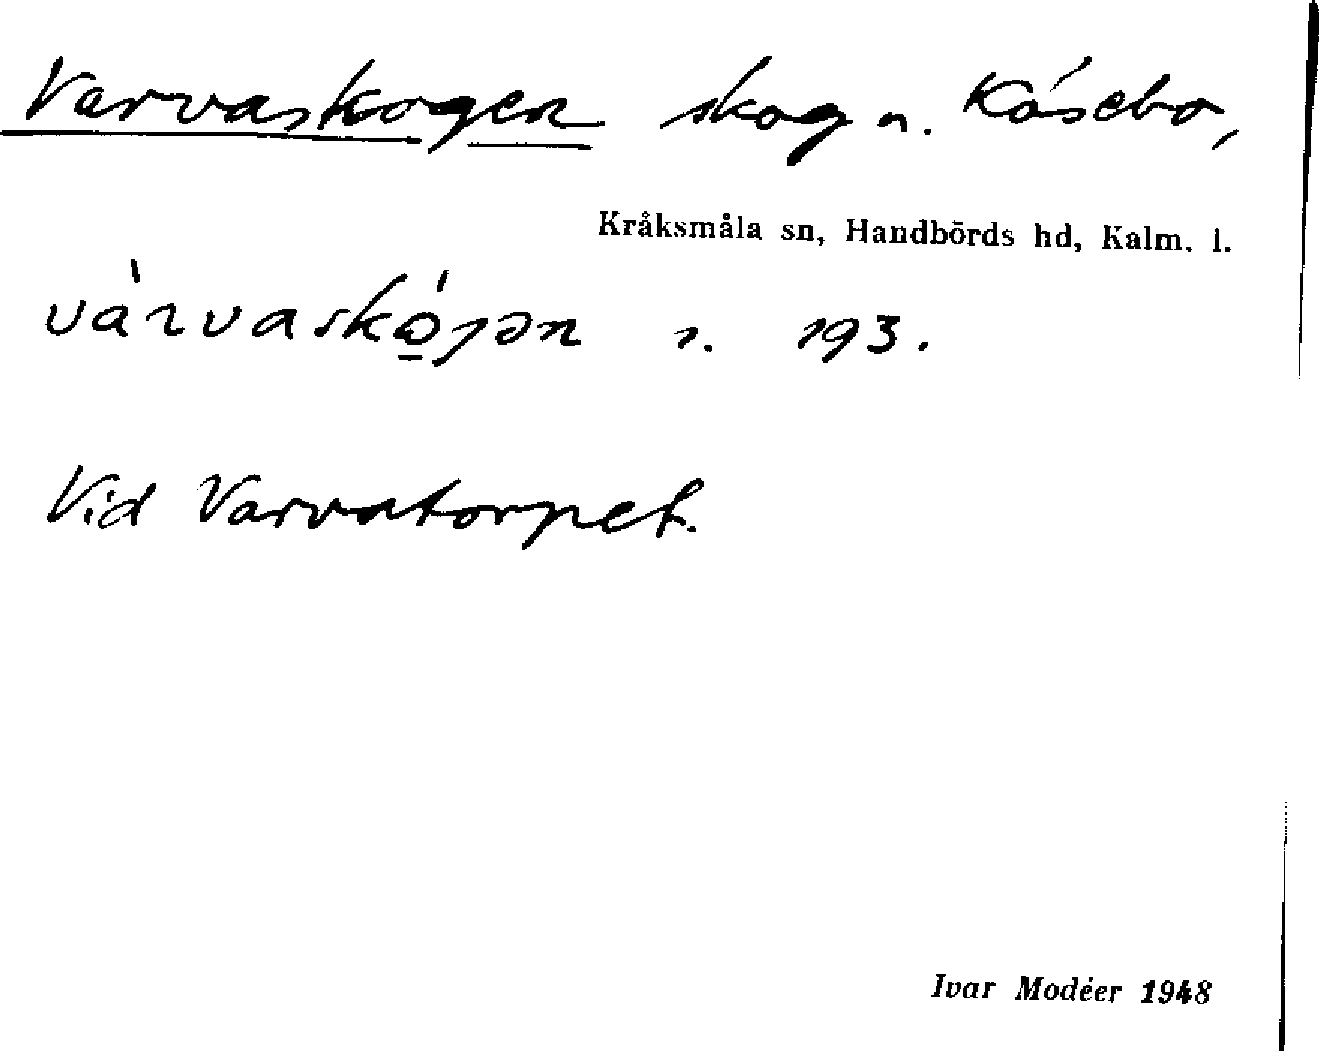 Varvaskogen skog n. Kåsebo,
Kråksmåla sn, Handbörds hd, Kalm. l.
vàrvaskó̱ȷən r. 193.
Vid Varvatorpet.
Ivar Modéer 1948